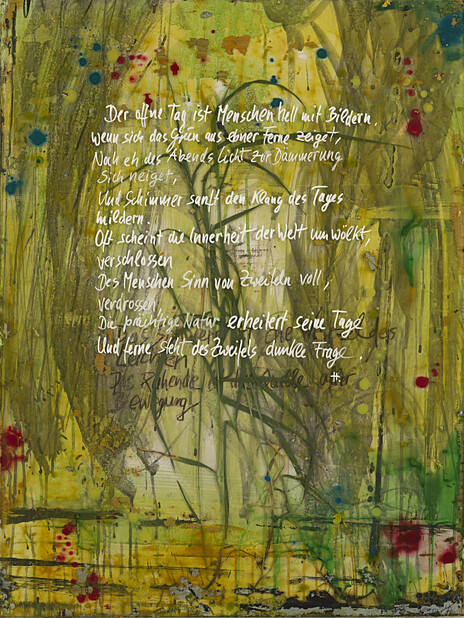 Der offne Tag ist Menschen hell mit Bildern.
Wenn sich das Grün aus ebner Ferne zeiget,
Noch eh des Abends Licht zur Dämmerung
Sich neiget,
Und Schimmer sanft den Klang des Tages
mildern.
Oft scheint die Innerheit der Welt umwölkt,
verschlossen
Des Menschen Sinn von Zweifeln voll,
verdrossen
Die prächtige Natur erheitert seine Tage
Und ferne steht des Zweifels dunkle Frage.
H.
Das Ruhende
Bewegung